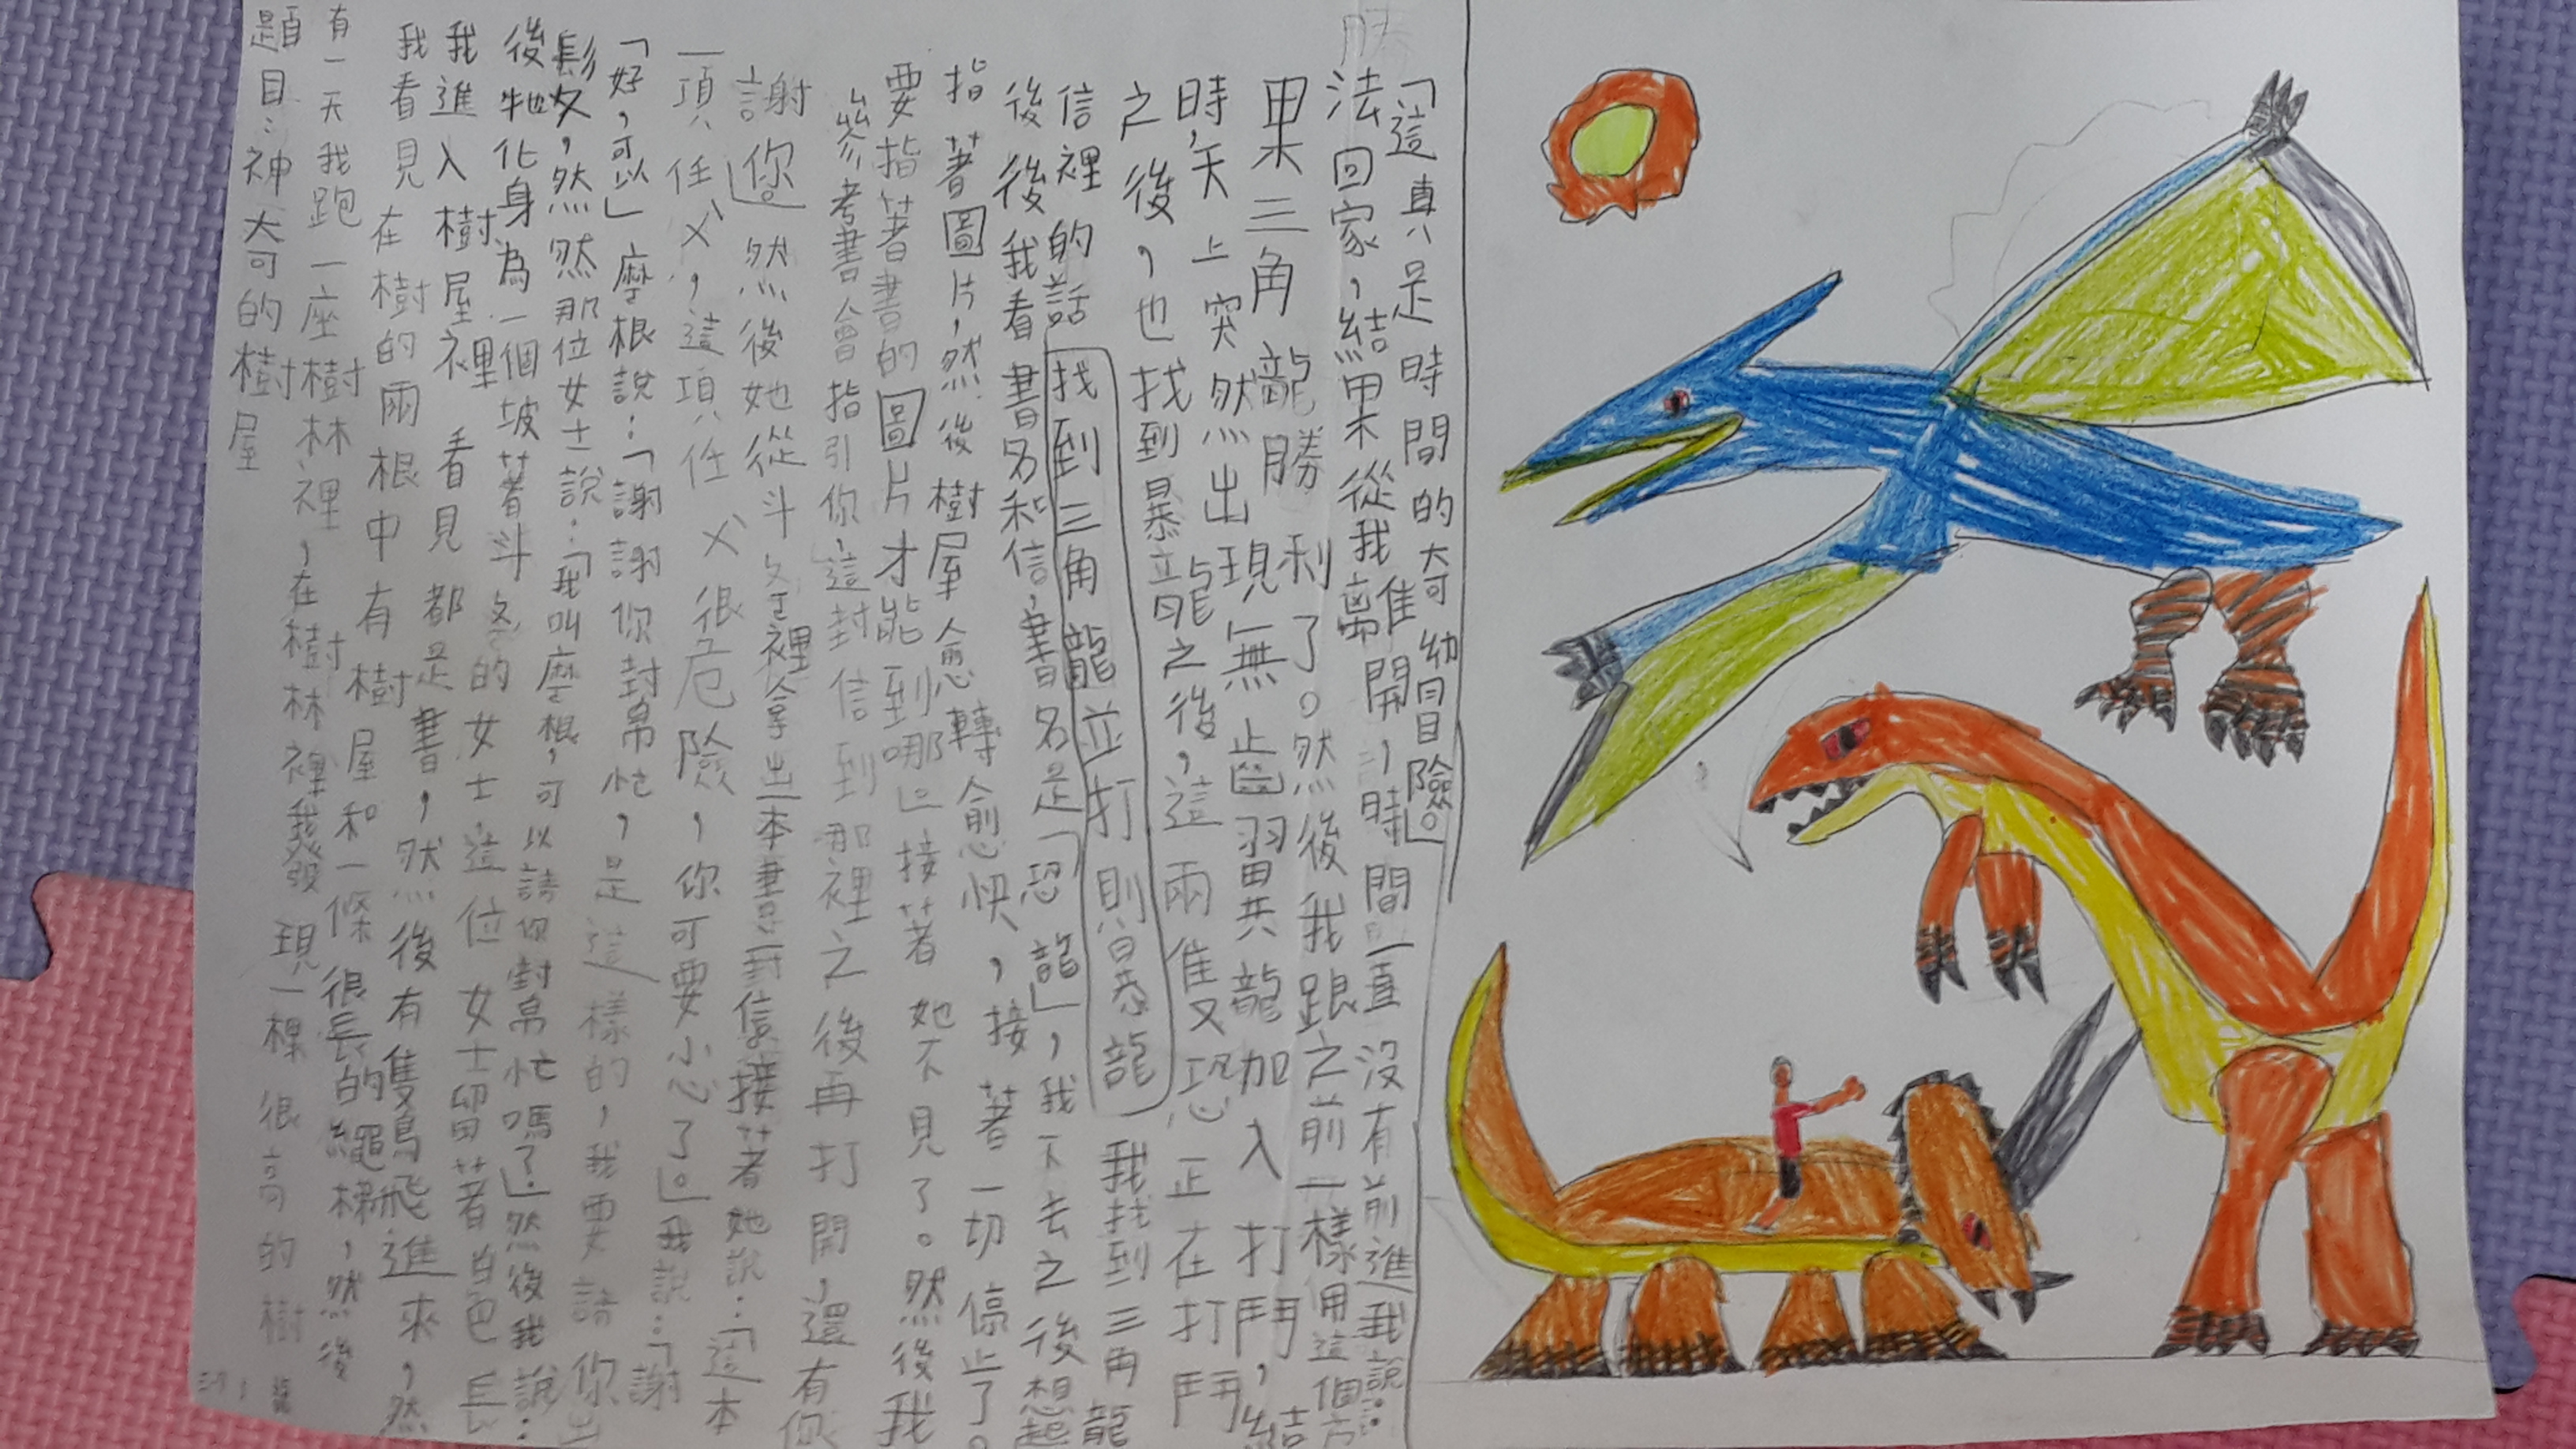 題目:神奇的樹屋
有一天我跑一座樹林裡，在樹林裡我發現一棵很高的樹
我看見在樹的兩根中有樹屋和一條很長的繩梯，然後
我進入樹屋裡 看見都是書，然後有隻鳥飛進來，然
後牠化身為一個坡著斗ㄆㄥˊ的女士,這位女士留著白色長
髮，然然那位女士說:「我叫摩根，可以請你封幫忙嗎?」然後我說:
「好，可以」摩根說:「謝謝你封幫忙，是這樣的，我要請你出
一項任ㄨˋ，這項任ㄨˋ很危險，你可要小心了。」我說:「謝
謝你。」然後她從斗ㄆㄥˊ裡拿出一本書一封信接著她說:「這本
參考書會指引你,這封信到那裡之後再打開，還有你
要指著書的圖片才能到哪。」接著她不見了。然後我
指著圖片，然後樹屋愈轉愈快，接著一切停止了。
後後我看書名和信，書名是「恐龍」，我下去之後想起
信裡的話找到三角龍並打則暴龍 我找到三角龍
之後，也找到暴龍之後，這兩隻恐龍正在打鬥
時,天上突然出現無齒翼龍加入打鬥，結
果三角龍勝利了。然後我跟之前一樣用這個方
法回家，結果從我離開，時間一直沒有前進我說:
「這真是時間的奇幼冒險。」